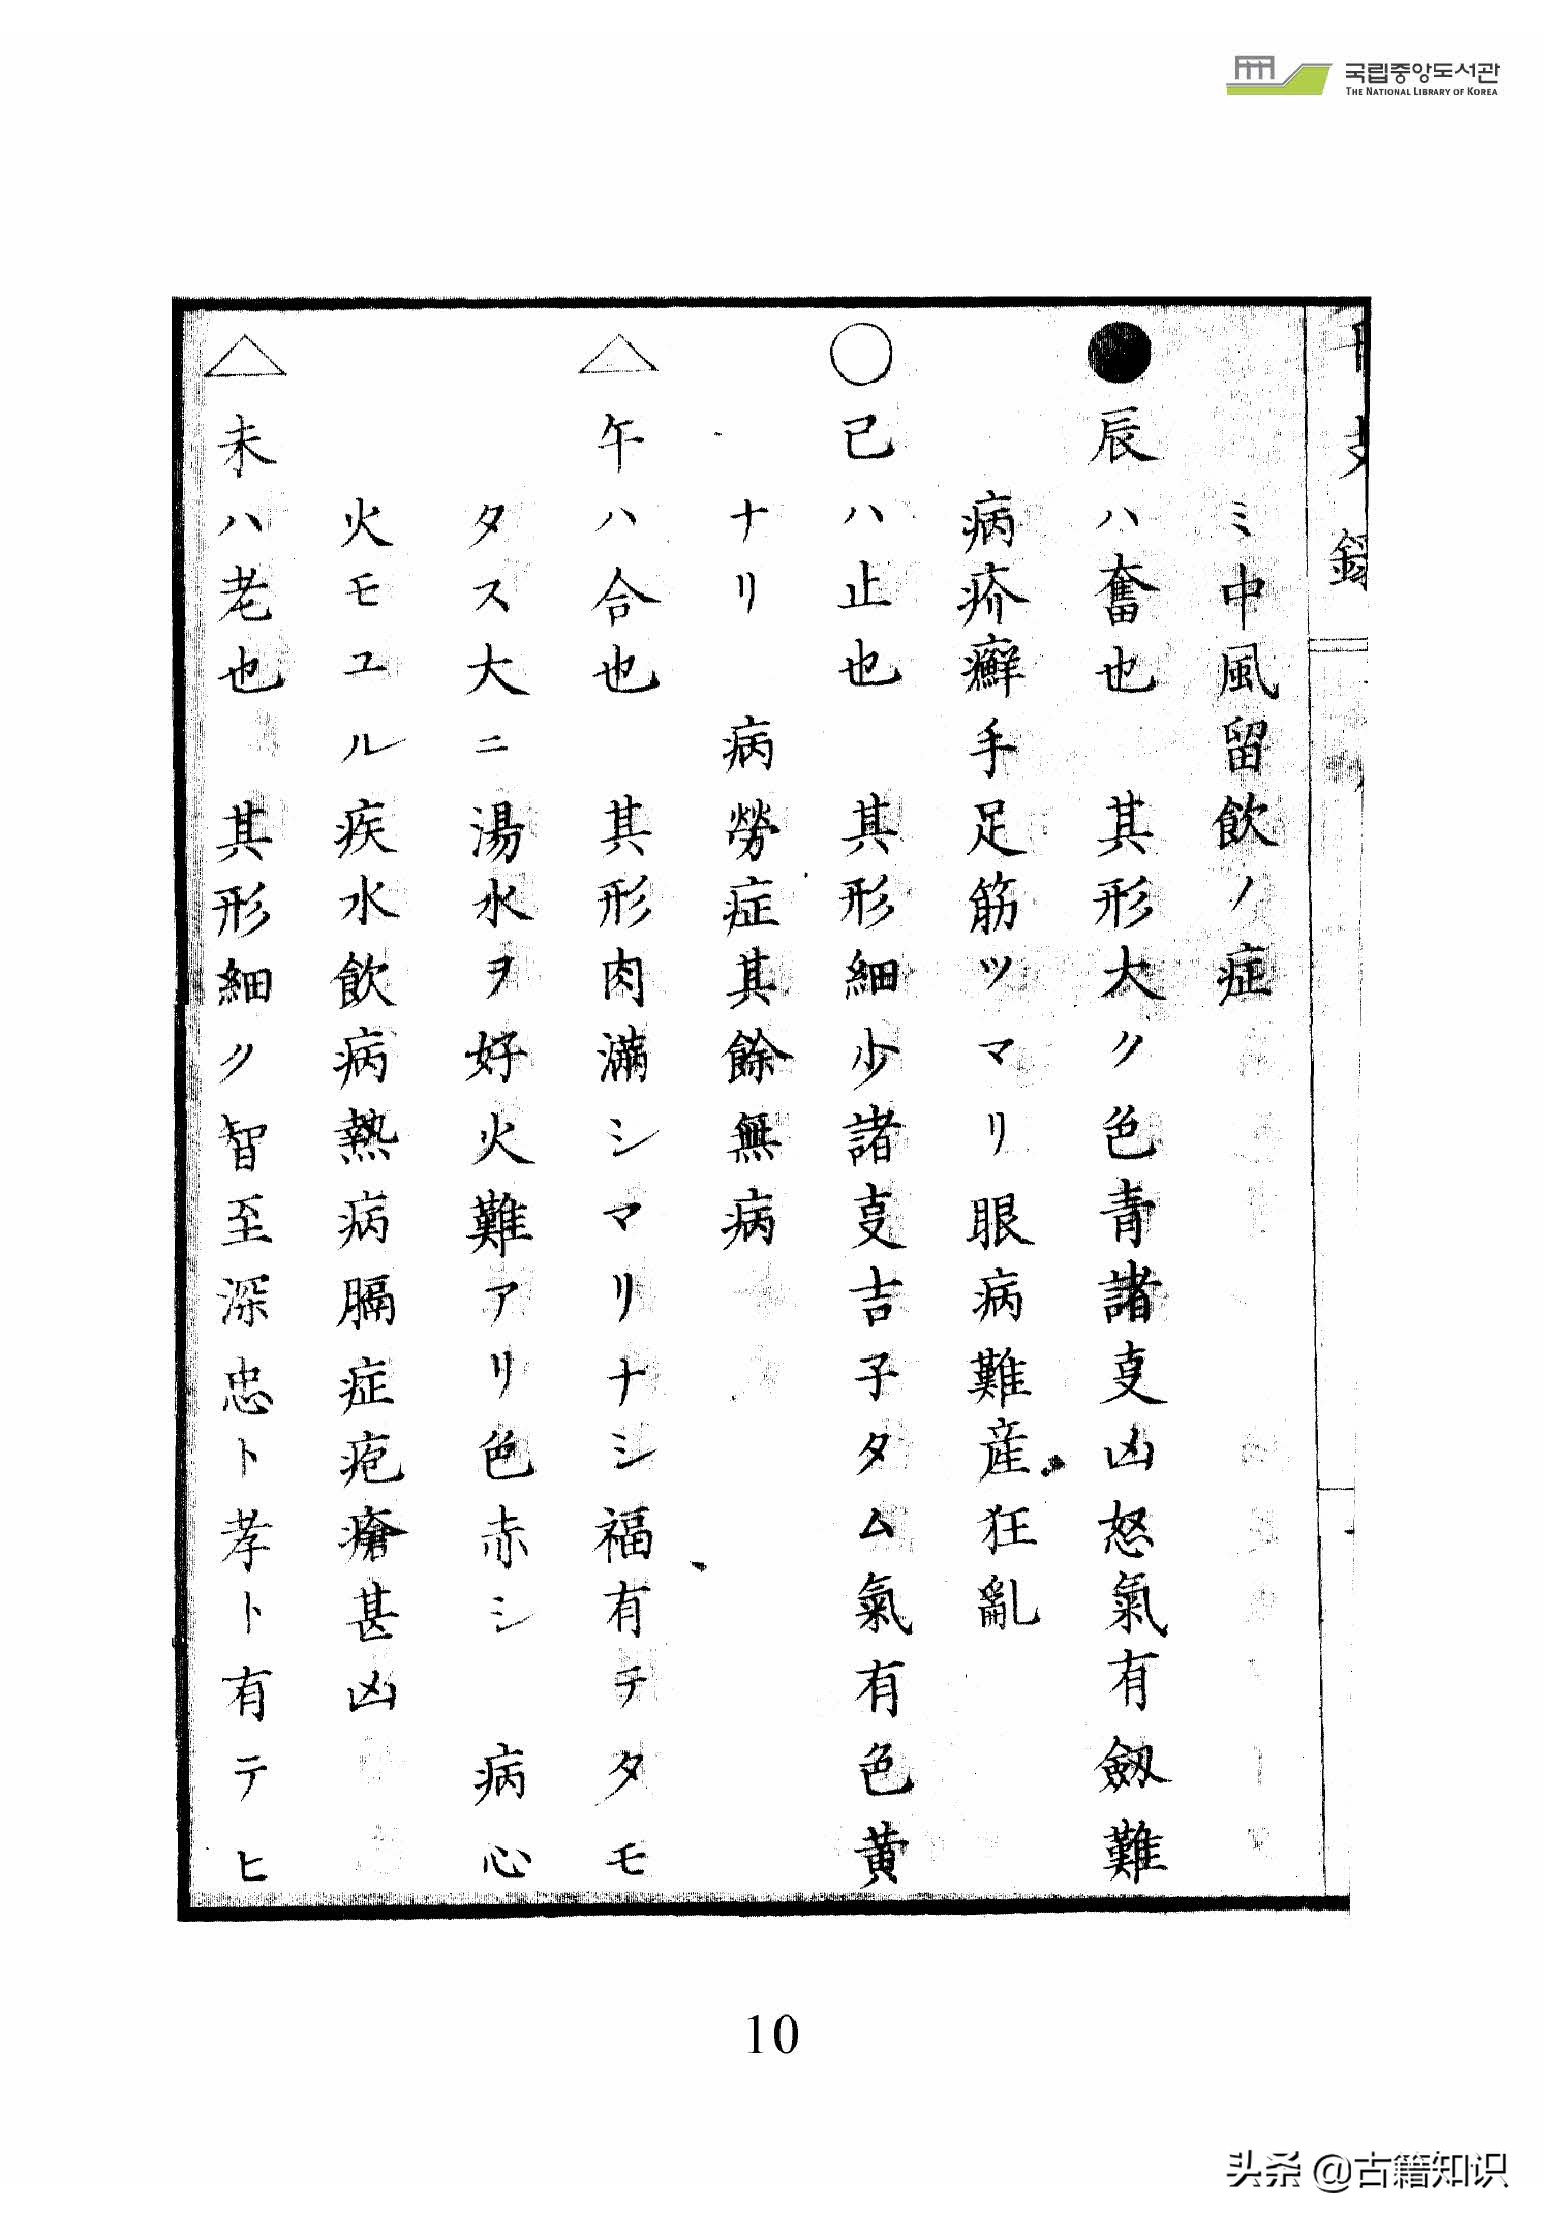 국립중앙도서관
THE NATIONAL LIBRARY OF KOREA
録
ミ中風留飲ノ症
●辰ハ奮也　其形大ク色青諸叓凶怒氣有劔難
病疥癬手足筋ツマリ眼病難産狂亂
○已ハ止也　其形細少諸叓吉子タム氣有色黄
ナリ　病勞症其餘無病
△午ハ合也　其形肉満シマリナシ福有テタモ
タス大ニ湯水ヲ好火難アリ色赤シ　病心
火モユル疾水飲病熱病膈症疱瘡甚凶
△未ハ老也　其形細ク智至深忠ト孝ト有テヒ
10
头条 @古籍知识